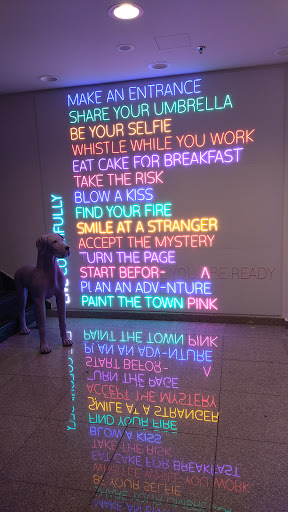 MAKE AN ENTRANCE
SHARE YOUR UMBRELLA
BE YOUR SELFIE
WHISTLE WHILE YOU WORK
EAT CAKE FOR BREAKFAST
TAKE THE RISK
BLOW A KISS
FIND YOUR FIRE
SMILE AT A STRANGER
ACCEPT THE MYSTERY
TURN THE PAGE
START BEFOR- YOU ARE READY
PLAN AN ADV-NTURE
PAINT THE TOWN PINK